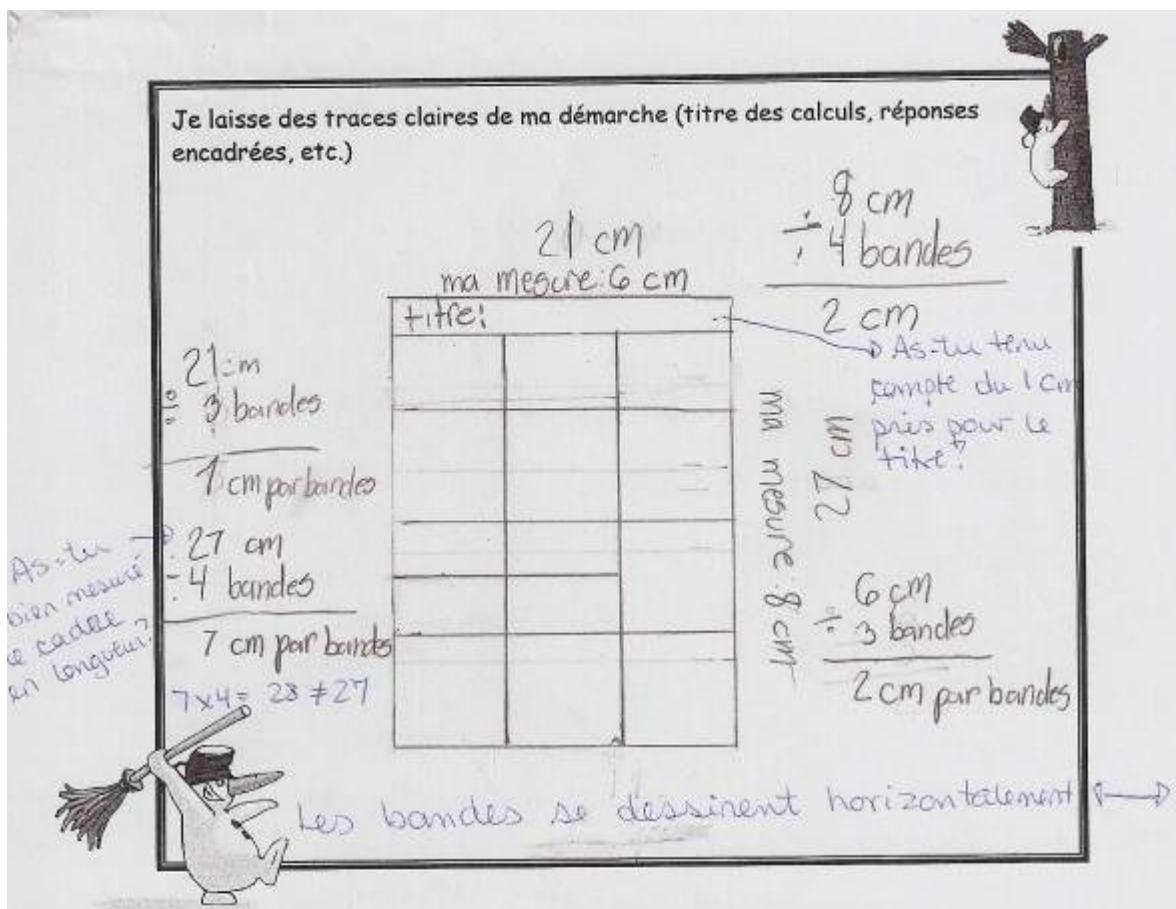 Je laisse des traces claires de ma démarche (titre des calculs, réponses
encadrées, etc.)
21 cm
ma mesure: 6 cm
titre:
8 cm
÷ 4 bandes
2 cm
As-tu tenu
compte du 1 cm
près pour le
titre?
21 cm
÷ 3 bandes
7 cm par bandes
As-tu
bien mesuré
le cadre
en longueur?
27 cm
÷ 4 bandes
7 cm par bandes
7x4= 28 ≠ 27
27 cm
ma mesure: 8 cm
6 cm
÷ 3 bandes
2 cm par bandes
Les bandes se dessinent horizontalement